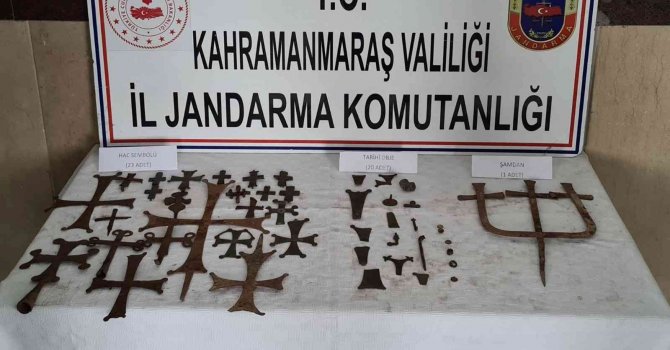 T.C.
KAHRAMANMARAŞ VALİLİĞİ
İL JANDARMA KOMUTANLIĞI
JANDARMA
HAÇ SEMBOLÜ
(23 ADET)
TARİHİ OBJE
(20 ADET)
ŞAMDAN
(1 ADET)